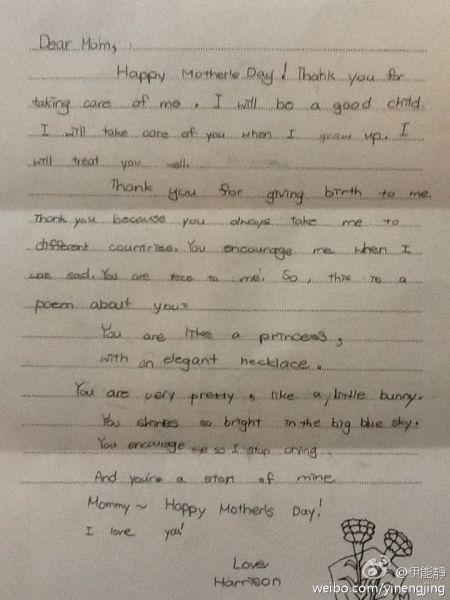 Dear Mom,
Happy Mother's Day! Thank you for
taking care of me. I will be a good child.
I will take care of you when I grow up. I
will treat you well.
Thank you for giving birth to me.
Thank you because you always take me to
different countries. You encourage me when I
was sad. You are nice to me. So, this is a
poem about you:
You are like a princess,
with an elegant necklace.
You are very pretty, like a little bunny.
You shines so bright in the big blue sky.
You encourage me so I stop cring.
And you're a start of mine.
Mommy~ Happy Mother's Day!
I love you!
Love
Harrison
@伊能静
weibo.com/yinengjing